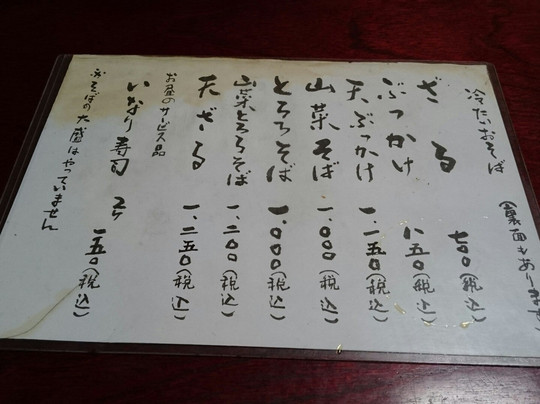 冷たいおそば
(裏面もあります)
ざる 七〇〇(税込)
ぶっかけ 八五〇(税込)
天ぶっかけ 一、一五〇(税込)
山菜そば 一、〇〇〇(税込)
とろろそば 一、〇〇〇(税込)
山菜とろろそば 一、二〇〇(税込)
天ざる 一、二五〇(税込)
お昼のサービス品
いなり寿司 2ケ 一五〇(税込)
※そばの大盛はやっていません